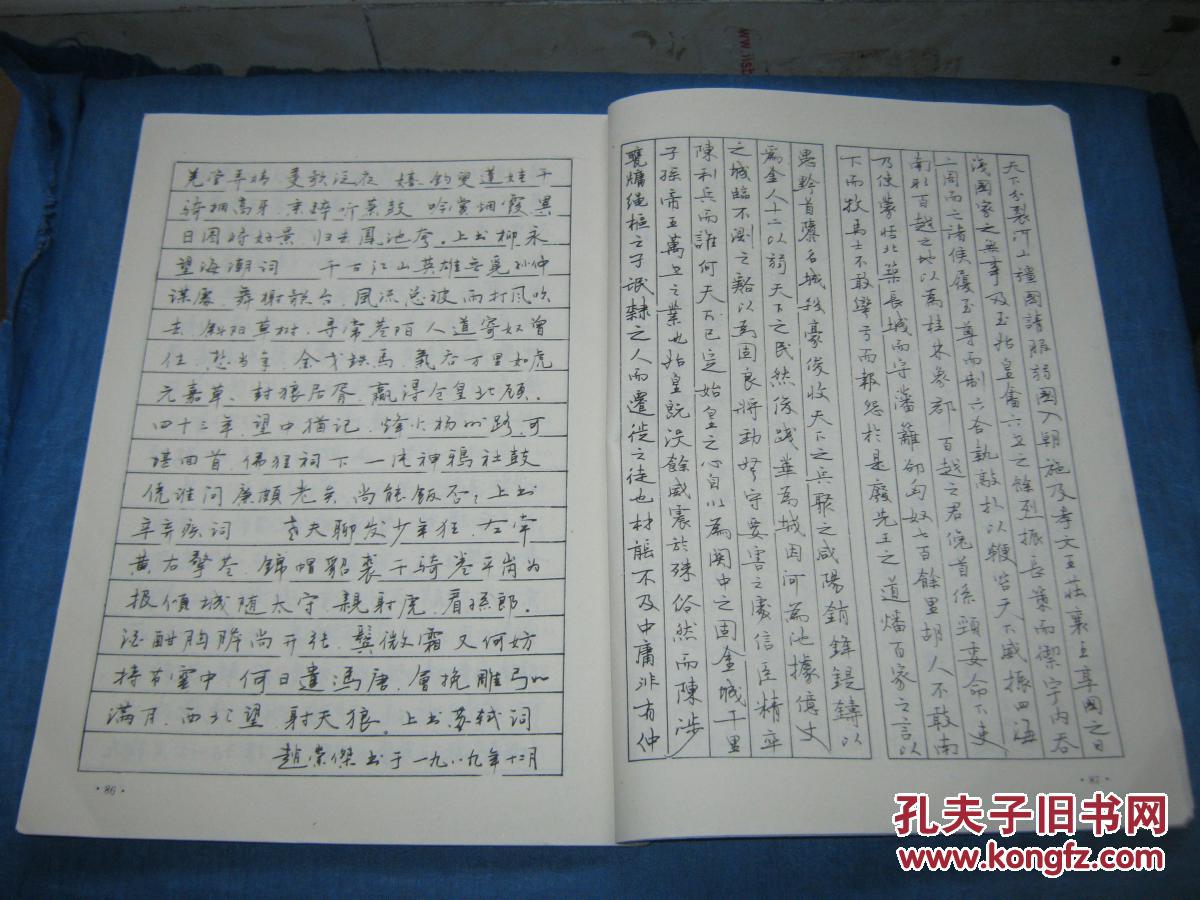 羌管弄晴,菱歌泛夜,嬉嬉钓叟莲娃,千
骑拥高牙,乘醉听萧鼓,吟赏烟霞,異
日图将好景,归去鳳池夸。上书柳永
望海潮词 千古江山英雄无覓孙仲
谋處,舞榭歌台,風流总被雨打风吹
去,斜阳草树,寻常巷陌人道寄奴曾
住,想当年,金戈铁馬,氣吞万里如虎
元嘉草草,封狼居胥,赢得仓皇北顾,
四十三年,望中猶记,烽火扬州路,可
堪回首,佛狸祠下一片神鴉社鼓
凭谁问廉頗老矣,尚能飯否?上书
辛弃疾词 老夫聊发少年狂,左牵
黄右擎苍,錦帽貂裘千骑卷平岗为
报傾城随太守,親射虎,看孫郎,
酒酣胸胆尚开张,鬓微霜又何妨
持节雲中何日遣馮唐,會挽雕弓如
满月,西北望,射天狼,上书苏轼词
趙棠傑书于一九八九年十二月
·86·
天下分裂河山疆國請服弱國入朝施及孝文王莊襄王享國之日
浅國家之無事及至始皇奮六立之餘烈振長策而禦宇内吞
二周而亡諸侯履至尊而制六合執敲扑以鞭笞天下威振四海
南取百越之地以爲桂林象郡百越之君俛首係頸委命下吏
乃使蒙恬北築長城而守藩籬卻匈奴七百餘里胡人不敢南
下而牧馬士不敢彎弓而報怨於是廢先王之道燔百家之言以
愚黔首隳名城殺豪俊收天下之兵聚之咸陽銷鋒鍉鑄以
爲金人十二以弱天下之民然後踐華為城因河為池據億丈
之城臨不測之谿以爲固良將勁弩守要害之處信臣精卒
陳利兵而誰何天下已定始皇之心自以為関中之固金城千里
子孫帝王萬世之業也始皇既沒餘威震於殊俗然而陳涉
甕牖绳樞之子氓隸之人而遷徙之徒也材能不及中庸非有仲
·87·
孔夫子旧书网
www.kongfz.com